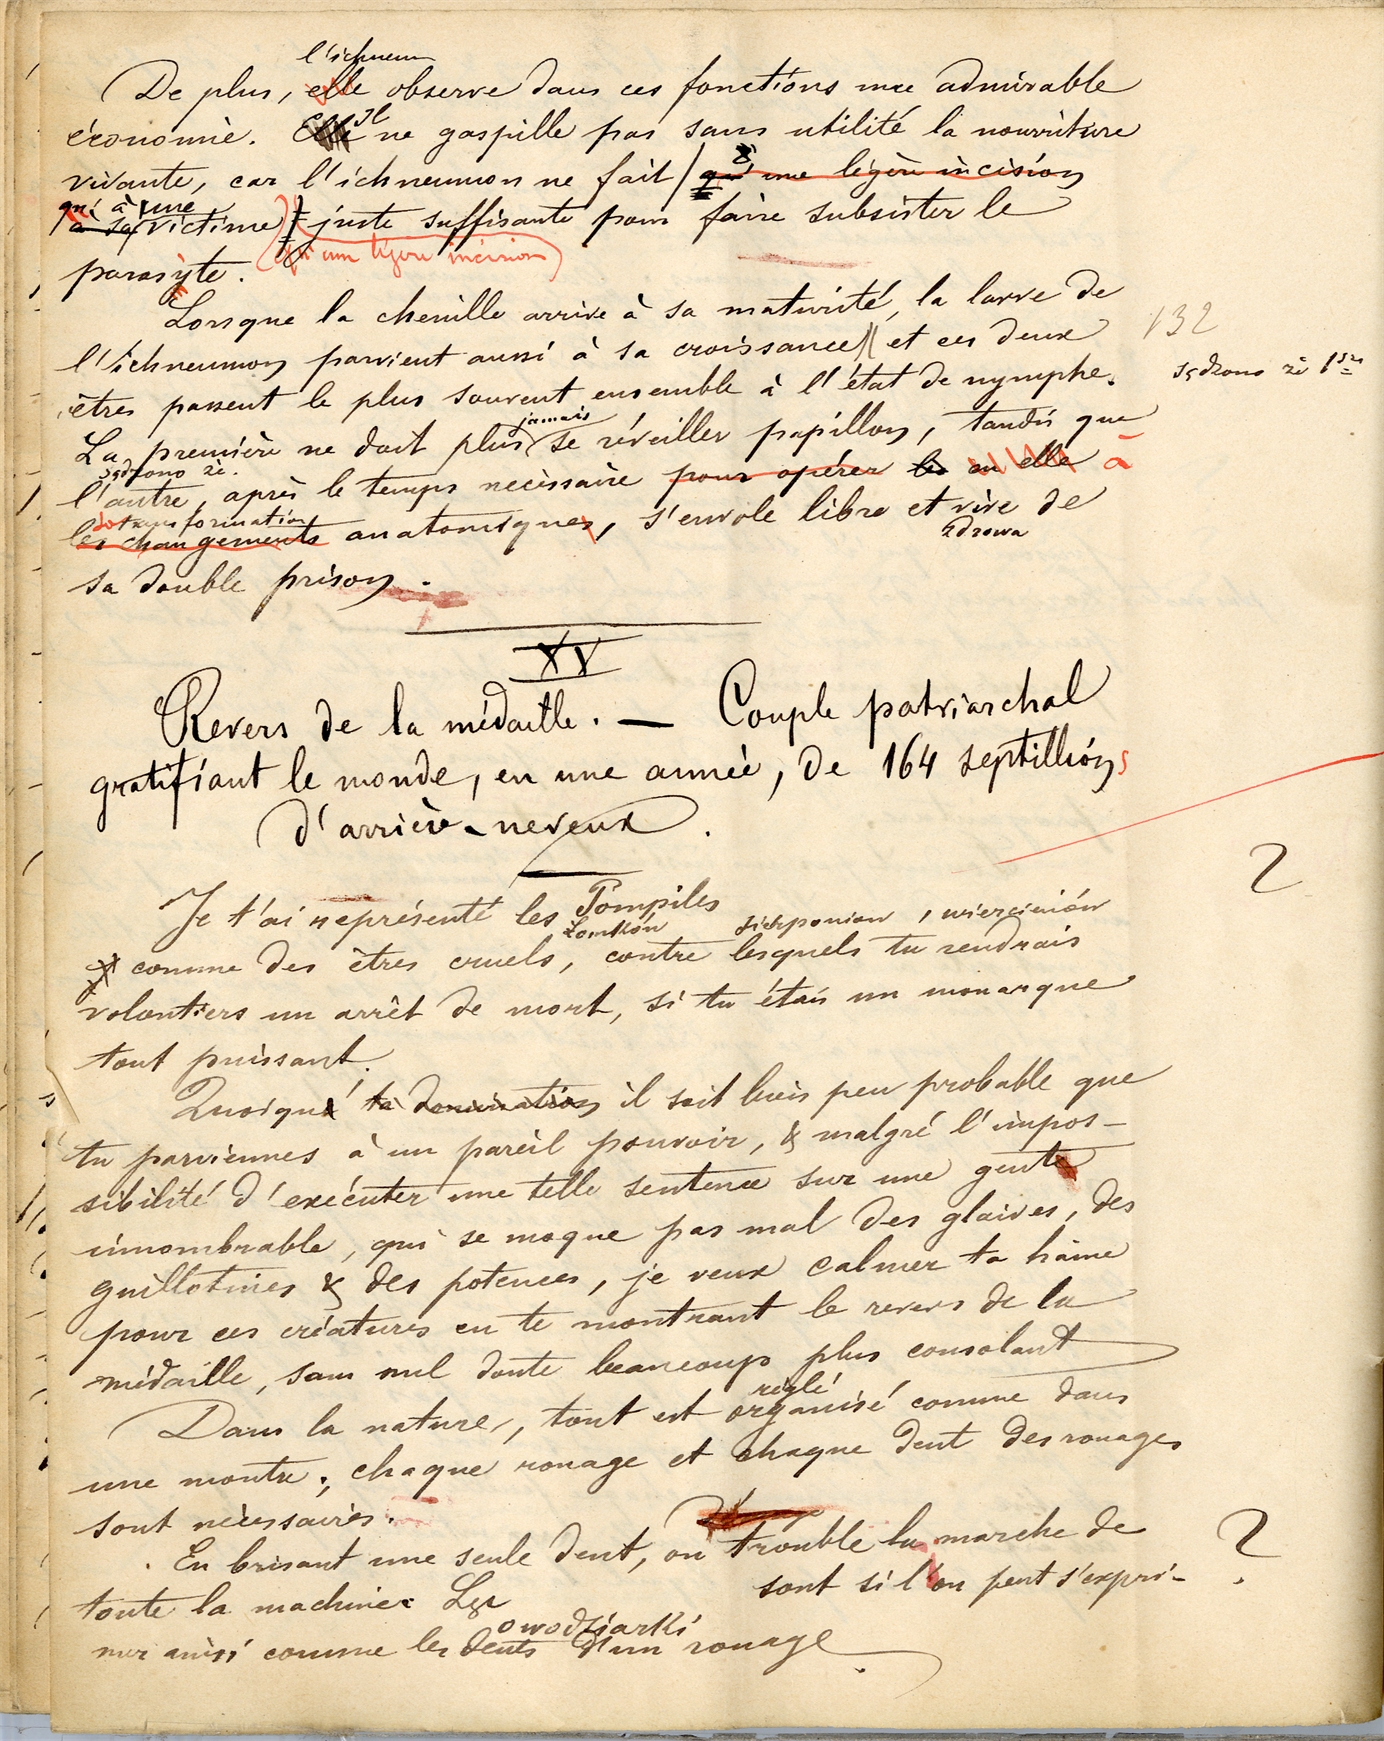 l'ichneum
De plus, elle observe dans ces fonctions une admirable
économie. Elle Il ne gaspille pas sans utilité la nourriture
vivante, car l'ichneumon ne fait qu'une légère incision
qui à une
à sa victime juste suffisante pour faire subsister le
qu'une légère incision
parasyte.
Lorsque la chenille arrive à sa maturité, la larve de
132
l'ichneumon parvient aussi à sa croissance et ces deux
êtres passent le plus souvent ensemble à l'état de nymphe.
jamais
La première ne doit plus se réveiller papillon, tandis que
l'autre, après le temps nécessaire pour opérer les en elle à
transformation
les changements anatomiques, s'envole libre et vive de
zdrowa
sa double prison.
XV
Revers de la médaille. — Couple patriarchal
gratifiant le monde, en une année, de 164 septillions
d'arrière-neveux.
2
Je t'ai représenté les Pompiles
comme des êtres cruels, contre lesquels tu rendrais
volontiers un arrêt de mort, si tu étais un monarque
tout puissant.
Quoique ta domination il soit bien peu probable que
tu parviennes à un pareil pouvoir, & malgré l'impos-
sibilité d'exécuter une telle sentence sur une gente
innombrable, qui se moque pas mal des glaives, des
guillotines & des potences, je veux calmer ta haine
pour ces créatures en te montrant le revers de la
médaille, sans nul doute beaucoup plus consolant
réglé
Dans la nature, tout est organisé comme dans
une montre; chaque rouage et chaque dent des rouages
sont nécessaires.
En brisant une seule dent, on trouble la marche de
?
toute la machine. Les sont si l'on peut s'expri-
owodziarki
mer ainsi comme les dents d'un rouage.